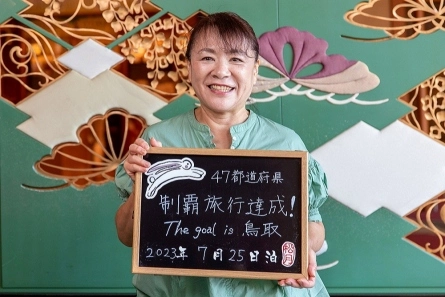 47都道府県
制覇旅行達成!
The goal is 鳥取
2023年 7月25日泊